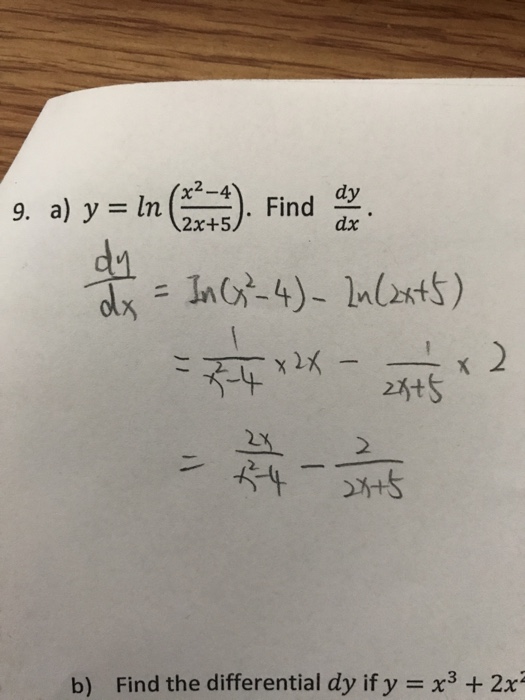 9. a) y = ln (x²−4 / 2x+5). Find dy/dx.
dy/dx = In(x²-4) - ln(2x+5)
= 1/(x²-4) × 2x - 1/(2x+5) × 2
= 2x/(x²-4) - 2/(2x+5)
b) Find the differential dy if y = x³ + 2x²